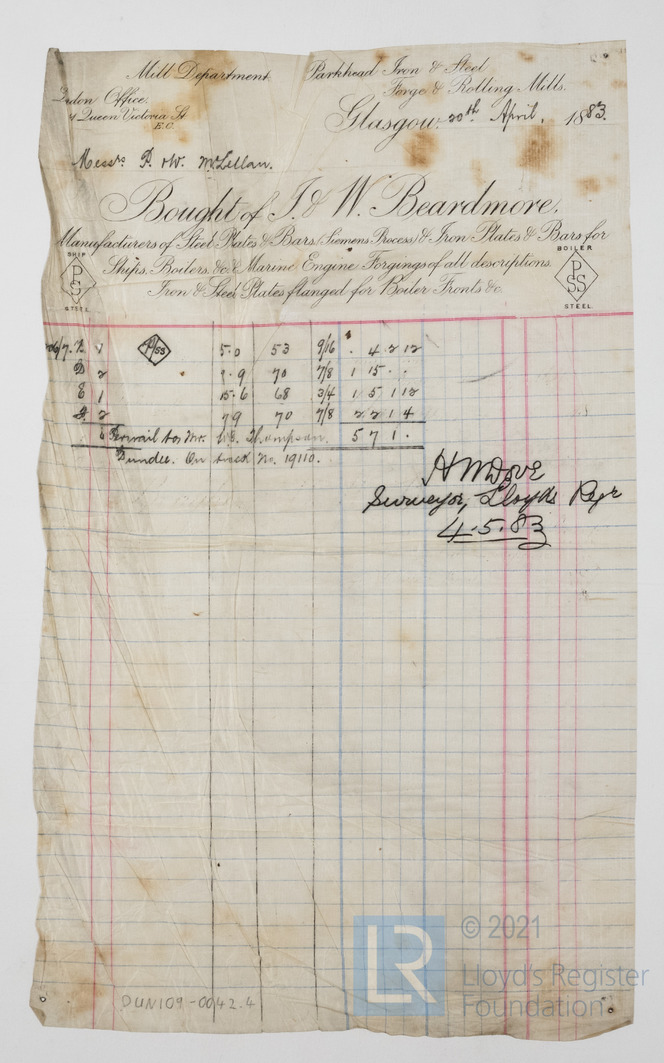 Mill Department
Parkhead Iron & Steel
Forge & Rolling Mills.
Office.
Queen Victoria St
E.C.
Glasgow. 20th April, 1883.
Messrs P. & W. McLellan.
Bought of I. & W. Beardmore.
Manufacturers of Steel Plates & Bars (Siemens Process) & Iron Plates & Bars for
Ships, Boilers, &c. & Marine Engine Forgings of all descriptions.
Iron & Steel Plates flanged for Boiler Fronts &c.
SHIP
PS
STEEL
BOILER
PSS
STEEL
1 P/SS 5.0 53 9/16 . 4 2 12
D 2 70 7/8 1 15 . .
E 1 15.6 68 3/4 1 5 1 12
2 7 9 70 7/8 2 2 1 4
6 Forward to Mr. Thompson 5 7 1 .
Dundee. On track No. 19110.
H M Dove
Surveyor, Lloyds Regr
4.5.83
DUN109-0042-4
LR
© 2021
Lloyd's Register
Foundation